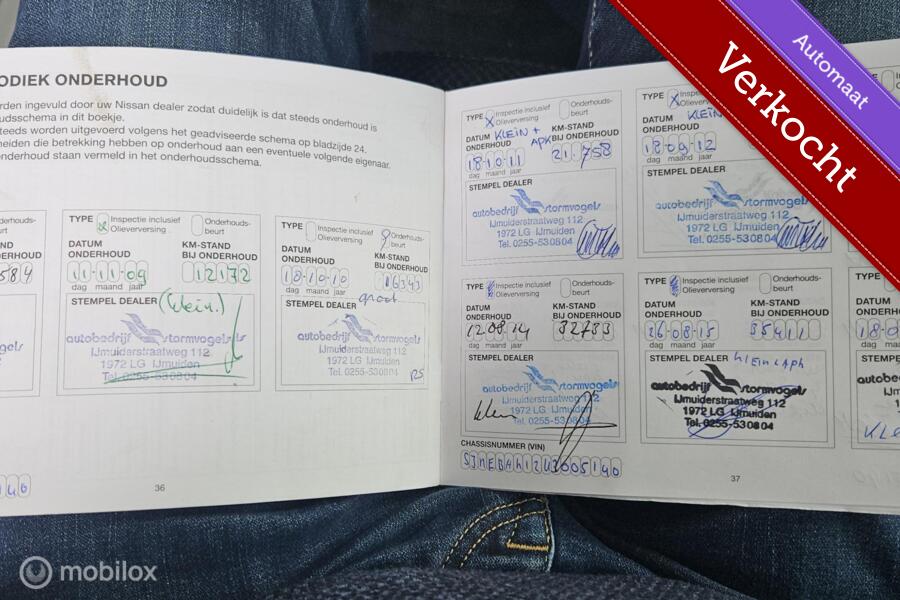 ODIEK ONDERHOUD
rden ingevuld door uw Nissan dealer zodat duidelijk is dat steeds onderhoud is
oudsschema in dit boekje.
teeds worden uitgevoerd volgens het geadviseerde schema op bladzijde 24.
heiden die betrekking hebben op onderhoud aan een eventuele volgende eigenaar.
onderhoud staan vermeld in het onderhoudsschema.
TYPE Inspectie inclusief Olieverversing Onderhouds-beurt
DATUM ONDERHOUD KM-STAND BIJ ONDERHOUD
11-11-09 12172
dag maand jaar
STEMPEL DEALER (klein.)
autobedrijf stormvogels
IJmuiderstraatweg 112
1972 LG IJmuiden
Tel. 0255-530804
TYPE Inspectie inclusief Olieverversing Onderhouds-beurt
DATUM ONDERHOUD KM-STAND BIJ ONDERHOUD
18-10-10 16343
dag maand jaar
STEMPEL DEALER groot
autobedrijf stormvogels
IJmuiderstraatweg 112
1972 LG IJmuiden
Tel. 0255-530804
36
TYPE X Inspectie inclusief Olieverversing Onderhouds-beurt
KLEIN + APK
DATUM ONDERHOUD KM-STAND BIJ ONDERHOUD
18-10-11 21.758
dag maand jaar
STEMPEL DEALER
autobedrijf stormvogels
IJmuiderstraatweg 112
1972 LG IJmuiden
Tel. 0255-530804
TYPE X
KLEIN
DATUM ONDERHOUD
18-09-12
dag maand jaar
STEMPEL DEALER
autobedrijf stormvogels
IJmuiderstraatweg 112
1972 LG IJmuiden
Tel. 0255-530804
TYPE Inspectie inclusief Olieverversing Onderhouds-beurt
DATUM ONDERHOUD KM-STAND BIJ ONDERHOUD
12 08 14 32733
dag maand jaar
STEMPEL DEALER
autobedrijf stormvogels
IJmuiderstraatweg 112
1972 LG IJmuiden
Tel. 0255-530804
klein
TYPE Inspectie inclusief Olieverversing Onderhouds-beurt
DATUM ONDERHOUD KM-STAND BIJ ONDERHOUD
26-08-15 35411
dag maand jaar
STEMPEL DEALER
autobedrijf stormvogels
IJmuiderstraatweg 112
1972 LG IJmuiden
Tel. 0255-530804
CHASSISNUMMER (VIN)
37
Automaat
Verkocht
mobilox